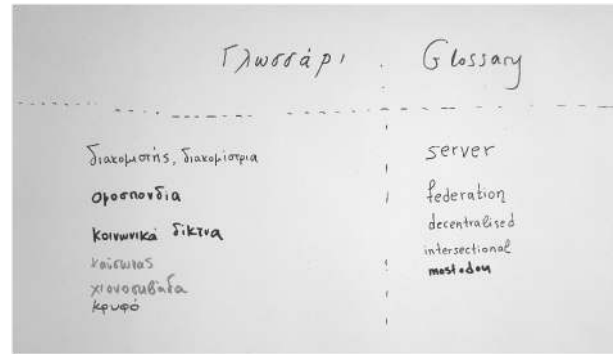 Γλωσσάρι
Glossary
διακομιστής, διακομίστρια
ομοσπονδια
κοινωνικά δίκτυα
χιονοστιβάδα
κρυφό
server
federation
decentralised
intersectional
mastodon